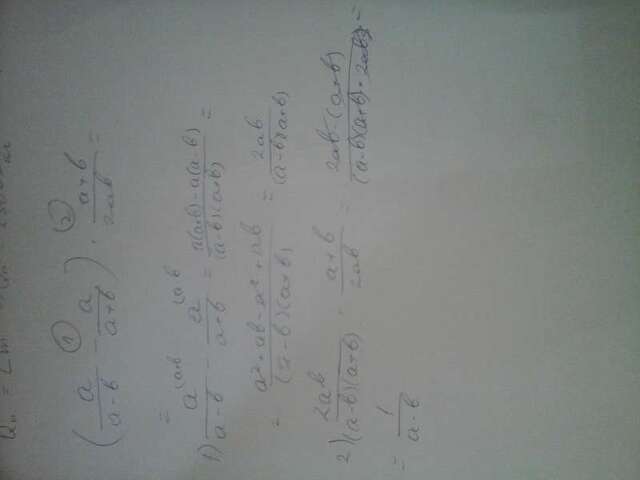 (a/(a-b) - a/(a+b)) · (a+b)/2ab =
① ②
=
1) a/(a-b) - a/(a+b) = (a(a+b)-a(a-b))/((a-b)(a+b)) =
= (a²+ab-a²+ab)/((a-b)(a+b)) = 2ab/((a-b)(a+b))
2) 2ab/((a-b)(a+b)) · (a+b)/2ab = 2ab·(a+b)/((a-b)(a+b)·2ab) =
= 1/(a-b)